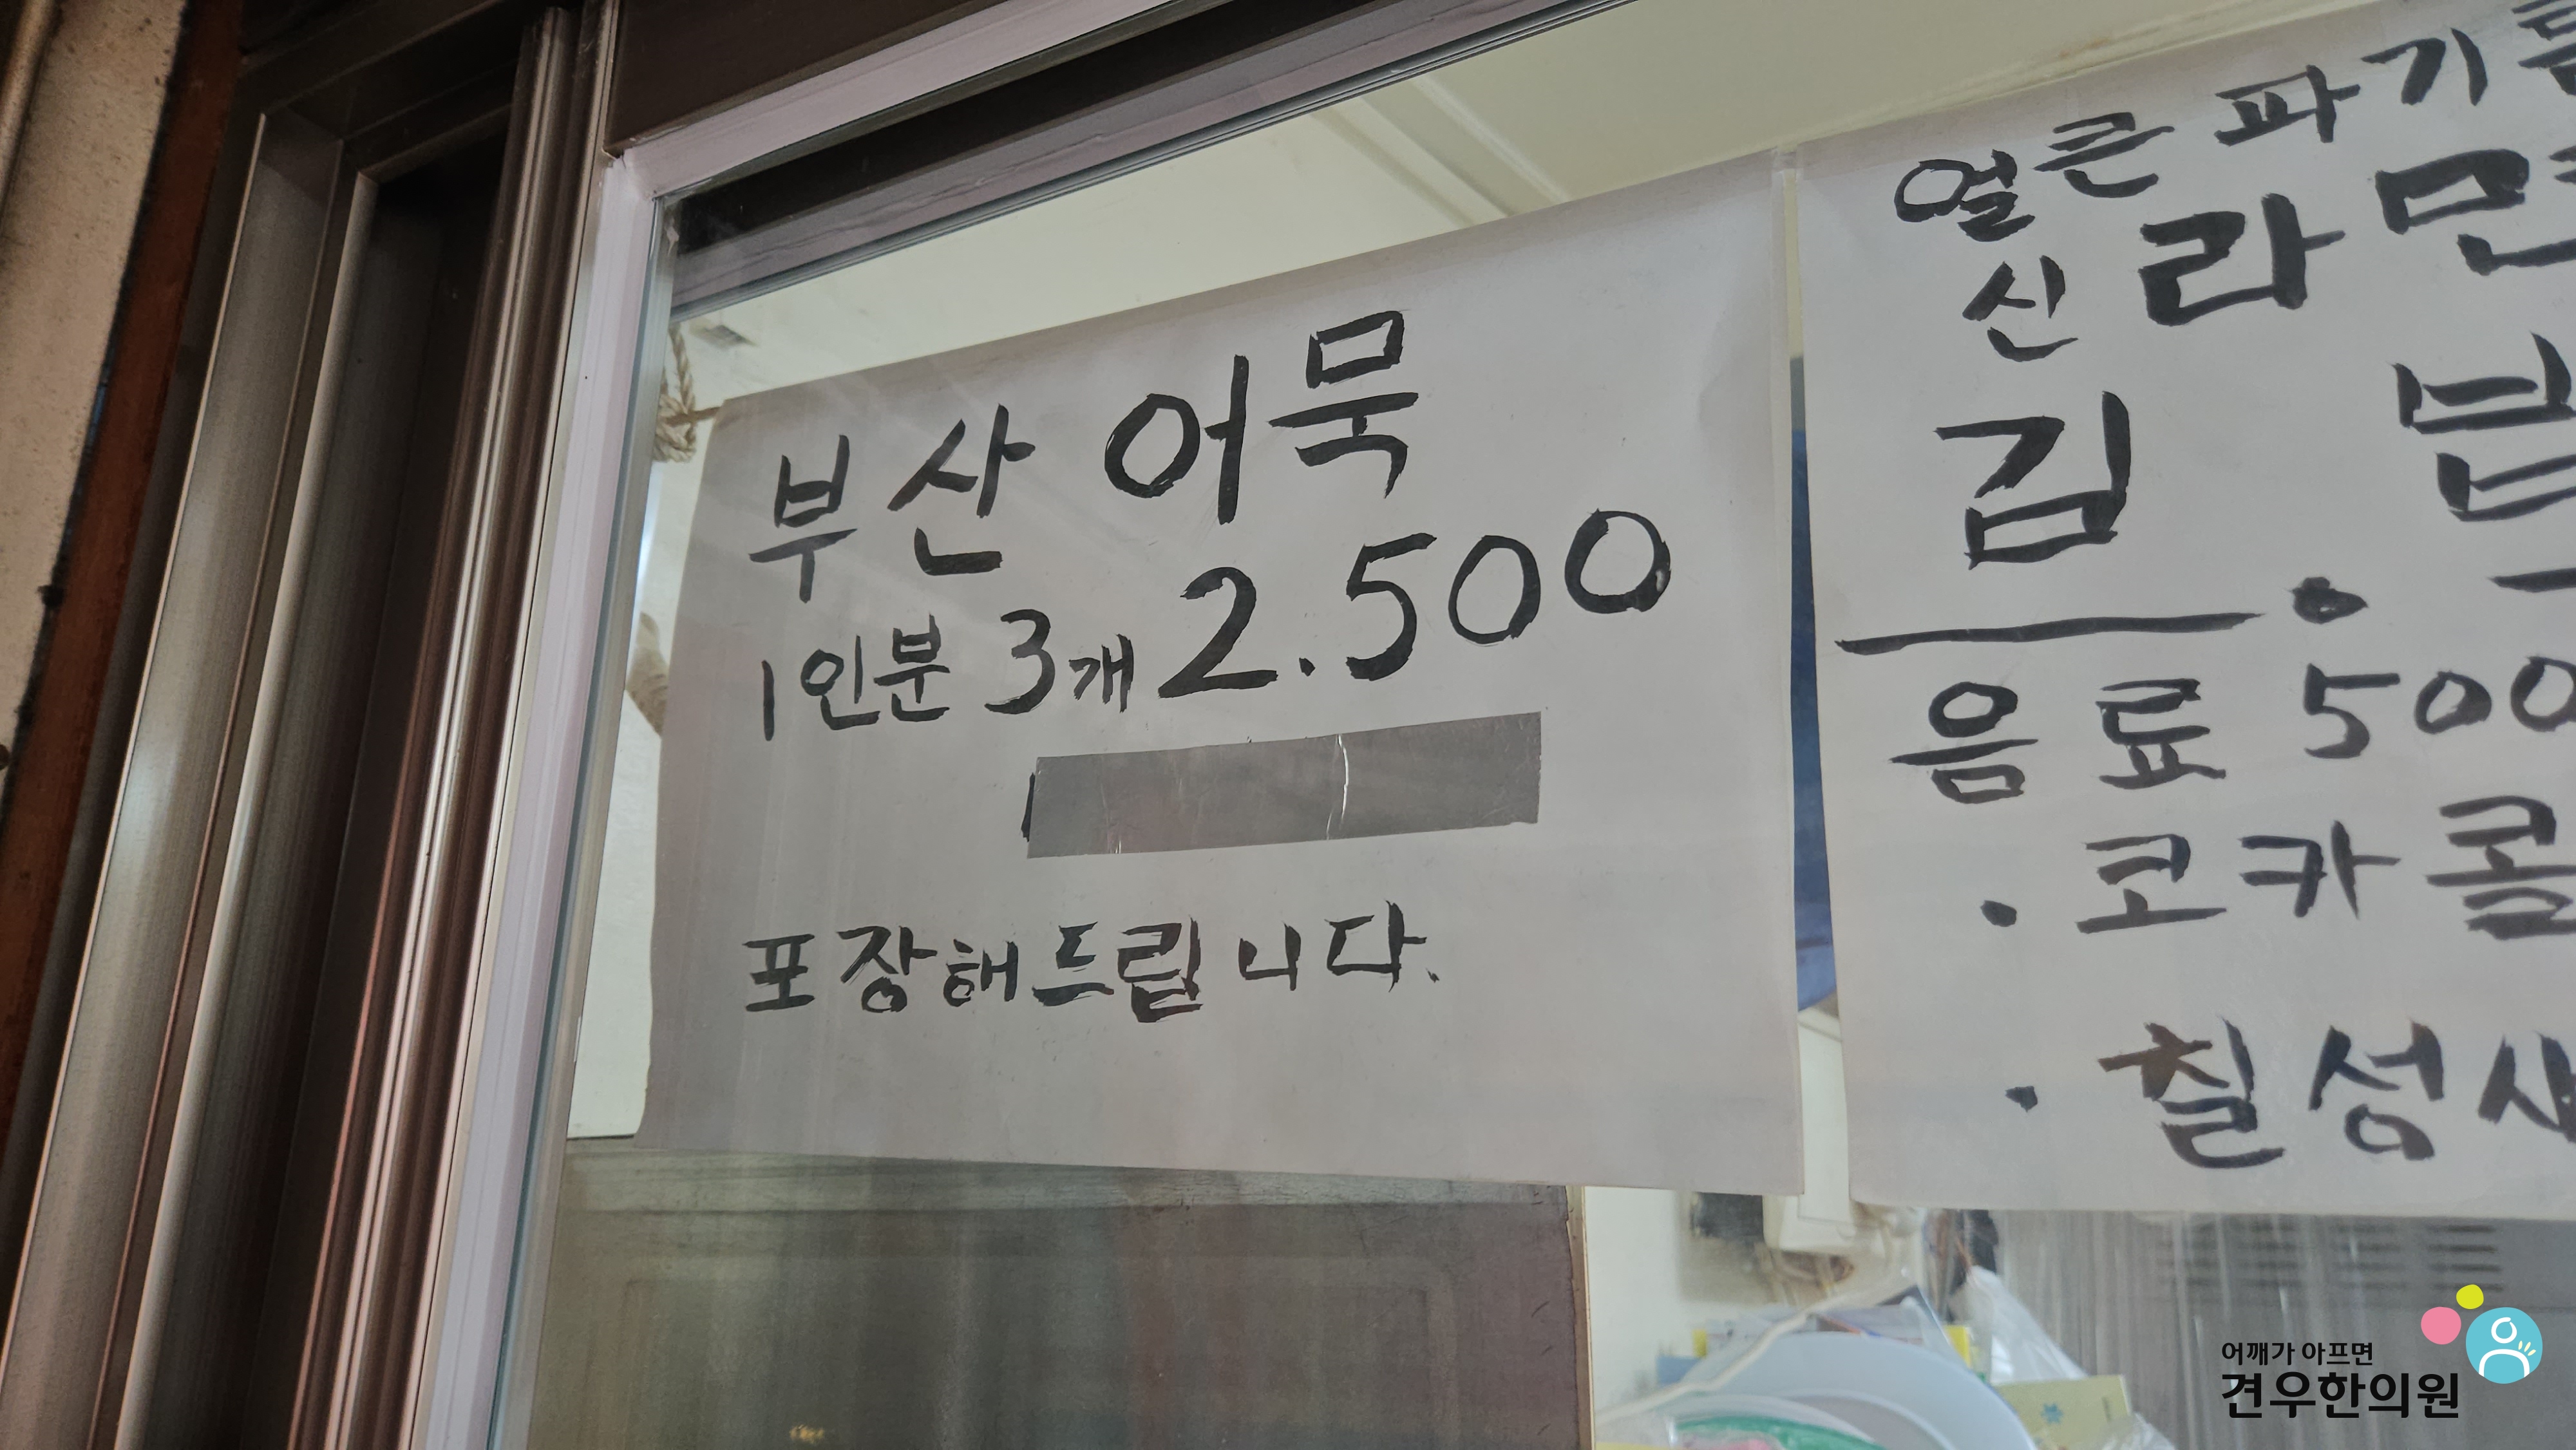 부산 어묵
1인분 3개 2.500
포장해드립니다.
얼큰 파기름
신라면
김.밥
음료 500
· 코카콜
· 칠성사
어깨가 아프면
견우한의원